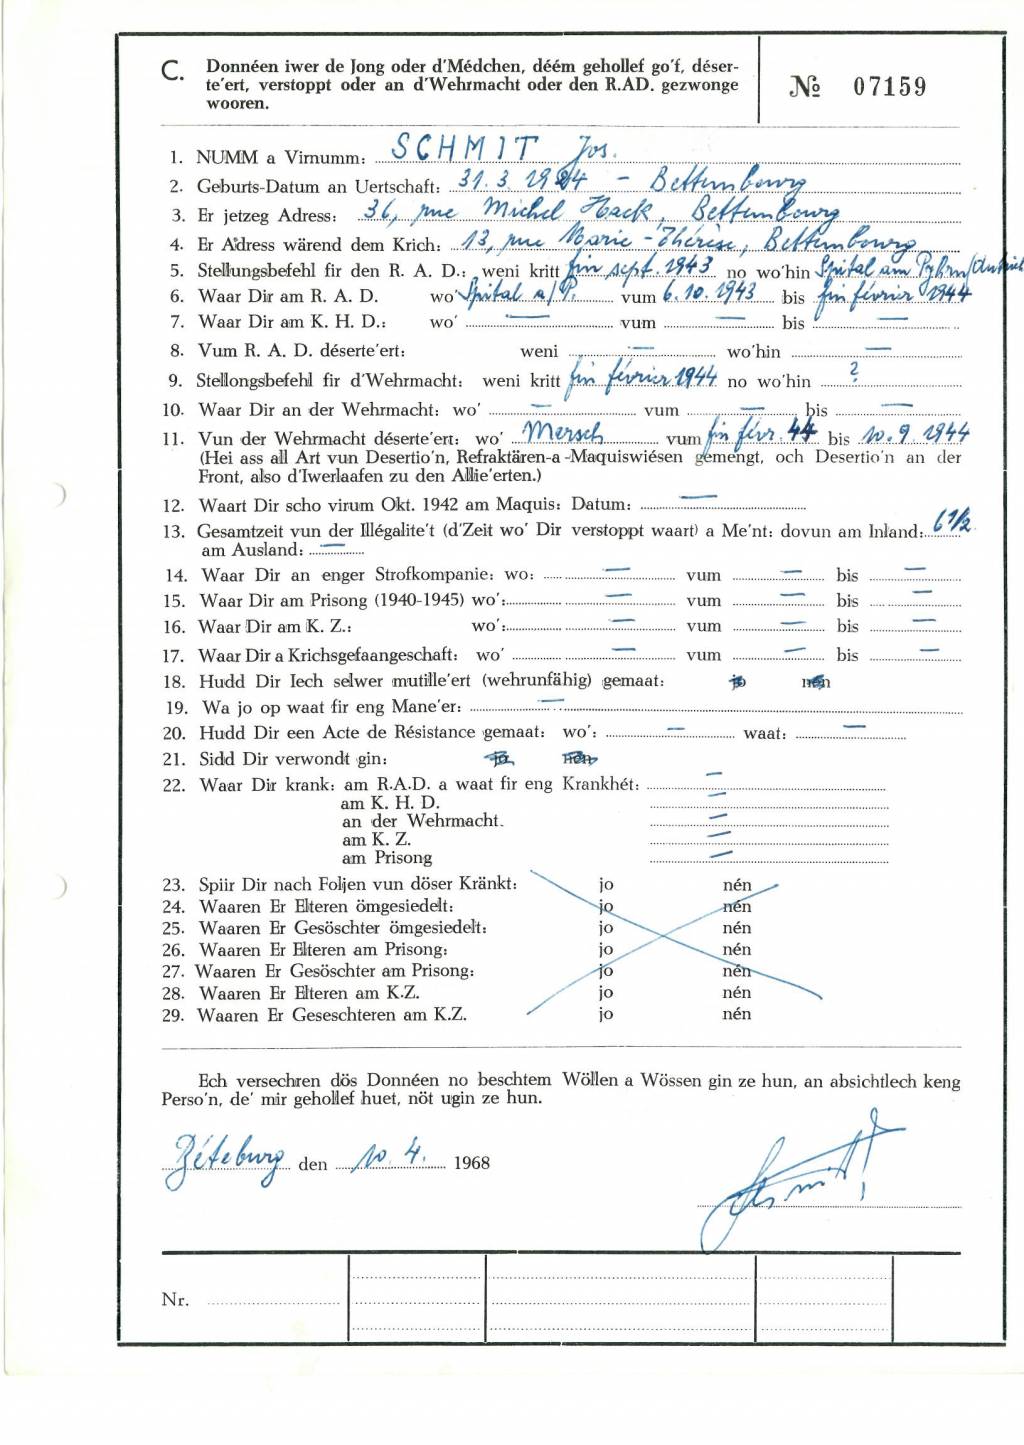 C. Donnéen iwer de Jong oder d'Médchen, déém gehollef go'f, déser-
te'ert, verstoppt oder an d'Wehrmacht oder den R.AD. gezwonge
wooren.
№ 07159
1. NUMM a Virnumm: SCHMIT Jos.
2. Geburts-Datum an Uertschaft: 31.3.1924 - Bettembourg
3. Er jetzeg Adress: 36, rue Michel Hack, Bettembourg
4. Er Adress wärend dem Krich: 13, rue Marie-Thérèse, Bettembourg
5. Stellungsbefehl fir den R. A. D.: weni kritt fin sept. 1943 no wo'hin Spital am Pyhrn/
6. Waar Dir am R. A. D. wo' Spital a/P. vum 6.10.1943 bis fin février 1944
7. Waar Dir am K. H. D.: wo' — vum — bis —
8. Vum R. A. D. déserte'ert: weni — wo'hin —
9. Stellongsbefehl fir d'Wehrmacht: weni kritt fin février 1944 no wo'hin ?
10. Waar Dir an der Wehrmacht: wo' — vum — bis —
11. Vun der Wehrmacht déserte'ert: wo' Mersch vum fin févr. 44 bis 10.9.1944
(Hei ass all Art vun Desertio'n, Refraktären-a-Maquiswiésen gemengt, och Desertio'n an der
Front, also d'Iwerlaafen zu den Allie'erten.)
12. Waart Dir scho virum Okt. 1942 am Maquis: Datum: —
13. Gesamtzeit vun der Illégalite't (d'Zeit wo' Dir verstoppt waart) a Me'nt: dovun am Inland: 6 1/2
am Ausland: —
14. Waar Dir an enger Strofkompanie: wo: — vum — bis —
15. Waar Dir am Prisong (1940-1945) wo': — vum — bis —
16. Waar Dir am K. Z.: wo': — vum — bis —
17. Waar Dir a Krichsgefaangeschaft: wo' — vum — bis —
18. Hudd Dir Iech selwer mutille'ert (wehrunfähig) gemaat: jo nén
19. Wa jo op waat fir eng Mane'er: —
20. Hudd Dir een Acte de Résistance gemaat: wo': — waat: —
21. Sidd Dir verwondt gin: jo nén
22. Waar Dir krank: am R.A.D. a waat fir eng Krankhét: —
am K. H. D. —
an der Wehrmacht. —
am K. Z. —
am Prisong —
23. Spiir Dir nach Foljen vun döser Kränkt: jo nén
24. Waaren Er Elteren ömgesiedelt: jo nén
25. Waaren Er Gesöschter ömgesiedelt: jo nén
26. Waaren Er Elteren am Prisong: jo nén
27. Waaren Er Gesöschter am Prisong: jo nén
28. Waaren Er Elteren am K.Z. jo nén
29. Waaren Er Geseschteren am K.Z. jo nén
Ech versechren dös Donnéen no beschtem Wöllen a Wössen gin ze hun, an absichtlech keng
Perso'n, de' mir gehollef huet, nöt ugin ze hun.
Béteburg den 10.4. 1968
Schmit J.
Nr.